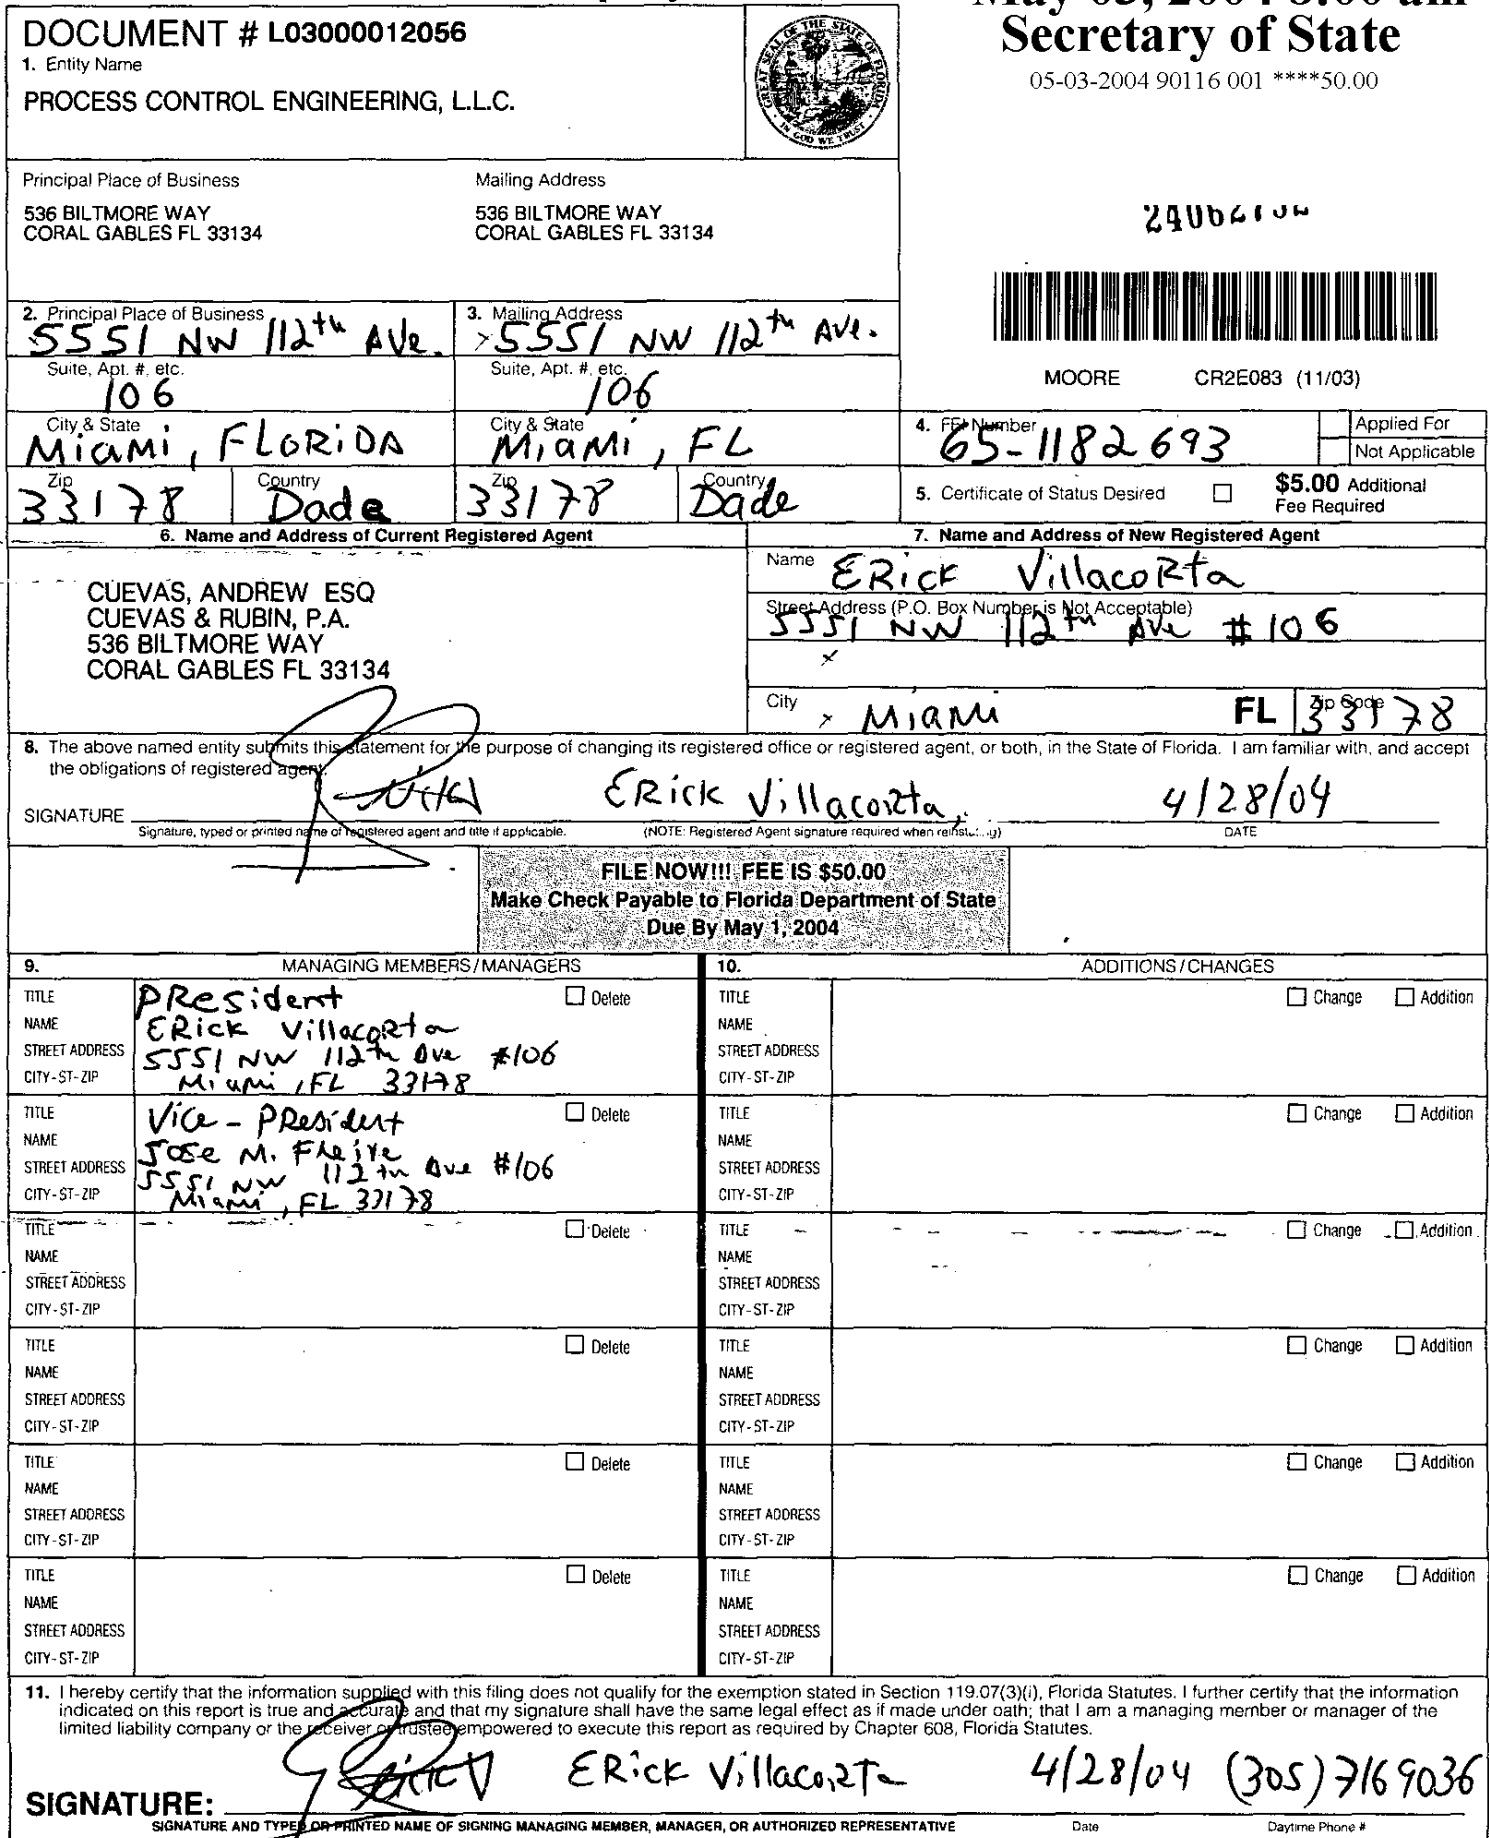 Secretary of State
05-03-2004 90116 001 ****50.00
DOCUMENT # L03000012056
1. Entity Name
PROCESS CONTROL ENGINEERING, L.L.C.
GREAT SEAL OF THE STATE OF FLORIDA
IN GOD WE TRUST
Principal Place of Business
536 BILTMORE WAY
CORAL GABLES FL 33134
Mailing Address
536 BILTMORE WAY
CORAL GABLES FL 33134
MOORE CR2E083 (11/03)
2. Principal Place of Business
5551 NW 112th Ave.
3. Mailing Address
5551 NW 112th Ave.
Suite, Apt. #, etc.
106
Suite, Apt. #, etc.
106
City & State
Miami, FLORIDA
City & State
Miami, FL
Zip
33178
Country
Dade
Zip
33178
Country
Dade
4. FEI Number
65-1182693
Applied For
Not Applicable
5. Certificate of Status Desired
$5.00 Additional
Fee Required
6. Name and Address of Current Registered Agent
CUEVAS, ANDREW ESQ
CUEVAS & RUBIN, P.A.
536 BILTMORE WAY
CORAL GABLES FL 33134
7. Name and Address of New Registered Agent
Name ERick Villacorta
Street Address (P.O. Box Number is Not Acceptable)
5551 NW 112th Ave #106
City Miami FL Zip Code 33178
8. The above named entity submits this statement for the purpose of changing its registered office or registered agent, or both, in the State of Florida. I am familiar with, and accept
the obligations of registered agent.
SIGNATURE ERick Villacorta, 4/28/04
Signature, typed or printed name of registered agent and title if applicable. (NOTE: Registered Agent signature required when reinstating) DATE
FILE NOW!!! FEE IS $50.00
Make Check Payable to Florida Department of State
Due By May 1, 2004
9. MANAGING MEMBERS/MANAGERS
10. ADDITIONS/CHANGES
TITLE PResident Delete
NAME ERick Villacorta
STREET ADDRESS 5551 NW 112th Ave #106
CITY-ST-ZIP Miami, FL 33178
TITLE Change Addition
NAME
STREET ADDRESS
CITY-ST-ZIP
TITLE Vice-PResident Delete
NAME Jose M. Freire
STREET ADDRESS 5551 NW 112th Ave #106
CITY-ST-ZIP Miami, FL 33178
TITLE Change Addition
NAME
STREET ADDRESS
CITY-ST-ZIP
TITLE Delete
NAME
STREET ADDRESS
CITY-ST-ZIP
TITLE Change Addition
NAME
STREET ADDRESS
CITY-ST-ZIP
TITLE Delete
NAME
STREET ADDRESS
CITY-ST-ZIP
TITLE Change Addition
NAME
STREET ADDRESS
CITY-ST-ZIP
TITLE Delete
NAME
STREET ADDRESS
CITY-ST-ZIP
TITLE Change Addition
NAME
STREET ADDRESS
CITY-ST-ZIP
TITLE Delete
NAME
STREET ADDRESS
CITY-ST-ZIP
TITLE Change Addition
NAME
STREET ADDRESS
CITY-ST-ZIP
11. I hereby certify that the information supplied with this filing does not qualify for the exemption stated in Section 119.07(3)(i), Florida Statutes. I further certify that the information
indicated on this report is true and accurate and that my signature shall have the same legal effect as if made under oath; that I am a managing member or manager of the
limited liability company or the receiver or trustee empowered to execute this report as required by Chapter 608, Florida Statutes.
SIGNATURE: ERick Villacorta 4/28/04 (305)7169036
SIGNATURE AND TYPED OR PRINTED NAME OF SIGNING MANAGING MEMBER, MANAGER, OR AUTHORIZED REPRESENTATIVE Date Daytime Phone #